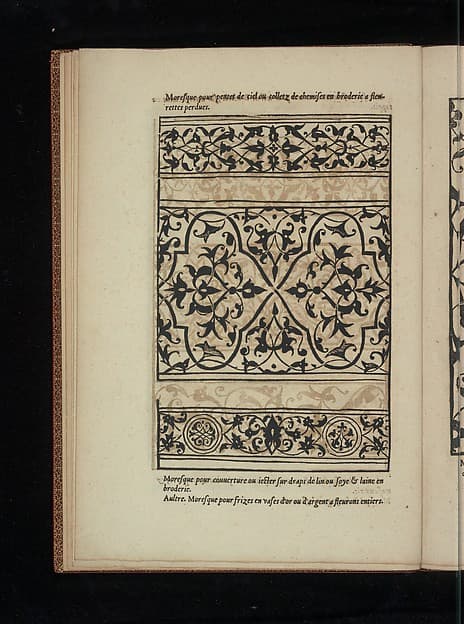 Moresque pour pentes de ciel ou colletz de chemises en broderie a fleu-
rettes perdues.
Moresque pour couuerture ou iecter sur drapt de lin ou soye & laine en
broderie.
Aultre. Moresque pour frizes en vases d'or ou d'argent a fleurons entiers.